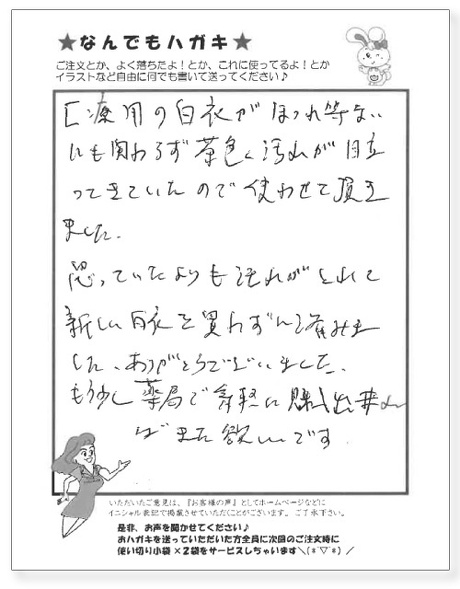 ★なんでもハガキ★
ご注文とか、よく落ちたよ！とか、これに使ってるよ！とか
イラストなど自由に何でも書いて送ってください♪
医療用の白衣がほつれ等ない
にも関わらず茶色く汚れが目立
ってきていたので使わせて頂き
ました。
思っていたよりも汚れがとれて
新しい白衣を買わずに済みま
した。ありがとうございました。
もう少し薬局で気軽に購入出来れ
ばまた欲しいです。
いただいたご意見は、『お客様の声』としてホームページなどに
イニシャル表記で掲載させていただくことがございます。ご了承下さい。
是非、お声を聞かせてください♪
おハガキを送っていただいた方全員に次回のご注文時に
使い切り小袋×2袋をサービスしちゃいます＼(*´▽`*)／